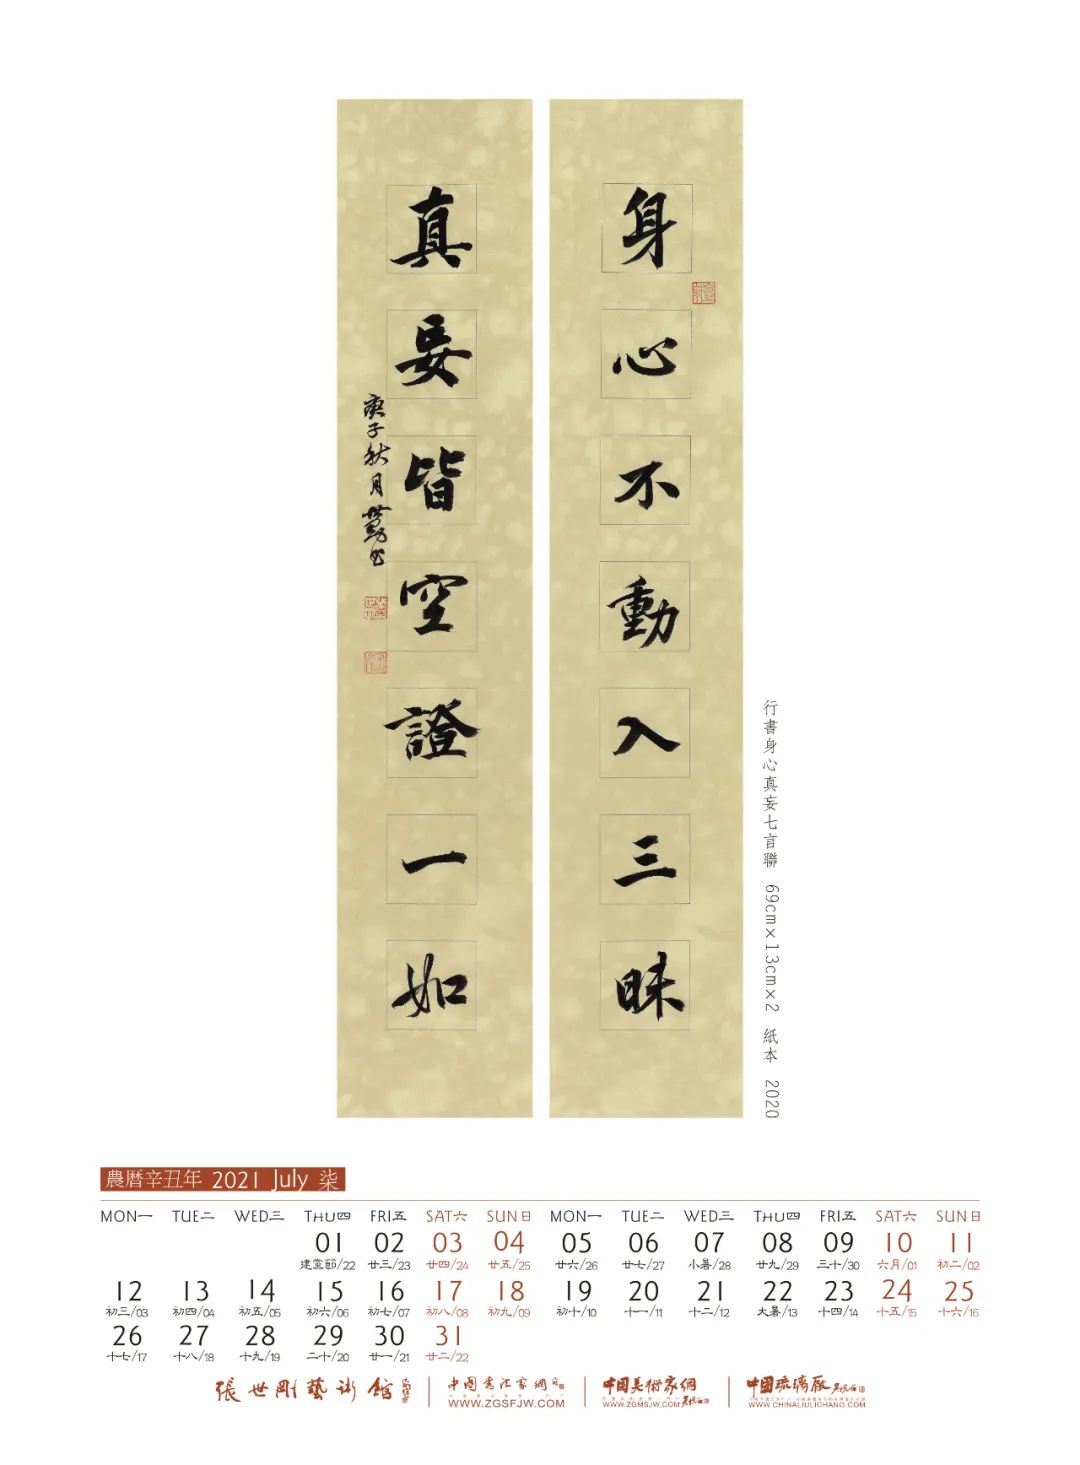 身心不動入三昧
真妄皆空證一如
庚子秋月世剛書
行書身心真妄七言聯 69cm×13cm×2 紙本 2020
農曆辛丑年 2021 July 柒
MON一 TUE二 WED三 THU四 FRI五 SAT六 SUN日 MON一 TUE二 WED三 THU四 FRI五 SAT六 SUN日
01 02 03 04 05 06 07 08 09 10 11
建黨節/22 廿三/23 廿四/24 廿五/25 廿六/26 廿七/27 小暑/28 廿九/29 三十/30 六月/01 初二/02
12 13 14 15 16 17 18 19 20 21 22 23 24 25
初三/03 初四/04 初五/05 初六/06 初七/07 初八/08 初九/09 初十/10 十一/11 十二/12 大暑/13 十四/14 十五/15 十六/16
26 27 28 29 30 31
十七/17 十八/18 十九/19 二十/20 廿一/21 廿二/22
張世剛藝術館
中國書法家網
WWW.ZGSFJW.COM
中國美術家網
WWW.ZGMSJW.COM
中國琉璃廠
WWW.CHINALIULICHANG.COM